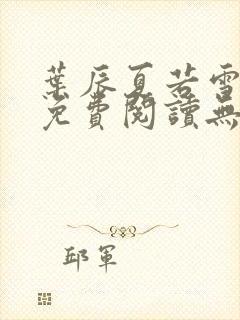 葉辰夏若雪
免費閱讀無
邱軍